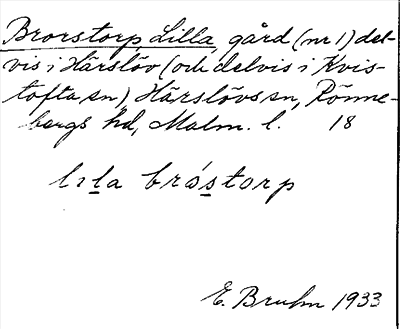 Brorstorp, Lilla, gård (nr 1) del-
vis i Härslöv (och delvis i Kvis-
tofta sn), Härslövs sn, Rönne-
bergs hd, Malm. l. 18
lıla brǻstorp
E. Bruhn 1933